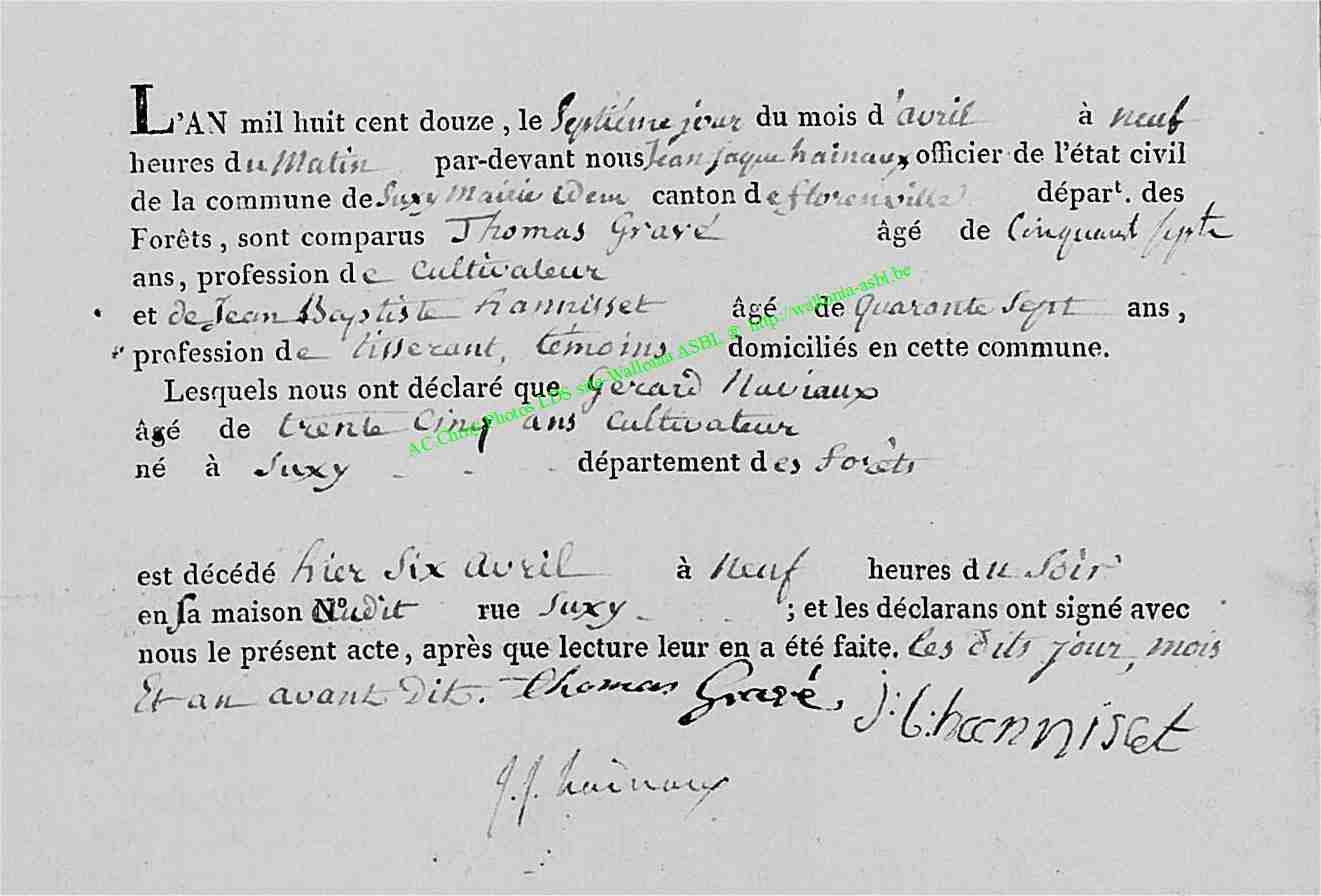 L'AN mil huit cent douze, le Septiéme jour du mois d'avril à neuf
heures du Matin par-devant nous Jean jaque hainaux, officier de l'état civil
de la commune de Suxy Mairie idem canton de florenville départ. des
Forêts, sont comparus Thomas Gravé âgé de Cinquant septe
ans, profession de Cultivateur
et de Jean Baptiste hannisset âgé de quarante Sept ans,
profession de tisserant, témoins domiciliés en cette commune.
Lesquels nous ont déclaré que Gérard Naviaux
âgé de trente Cinq ans Cultivateur
né à Suxy département des forêts
est décédé hier Six avril à neuf heures du Soir
en sa maison N° udit rue Suxy ; et les déclarans ont signé avec
nous le présent acte, après que lecture leur en a été faite. les dits jour, mois
Et an avant dit. Thomas Gravé, J: b: hanniset
J.J. hainaux
AC.Chiny Photos LDS site Wallonia ASBL @ http://wallonia-asbl.be